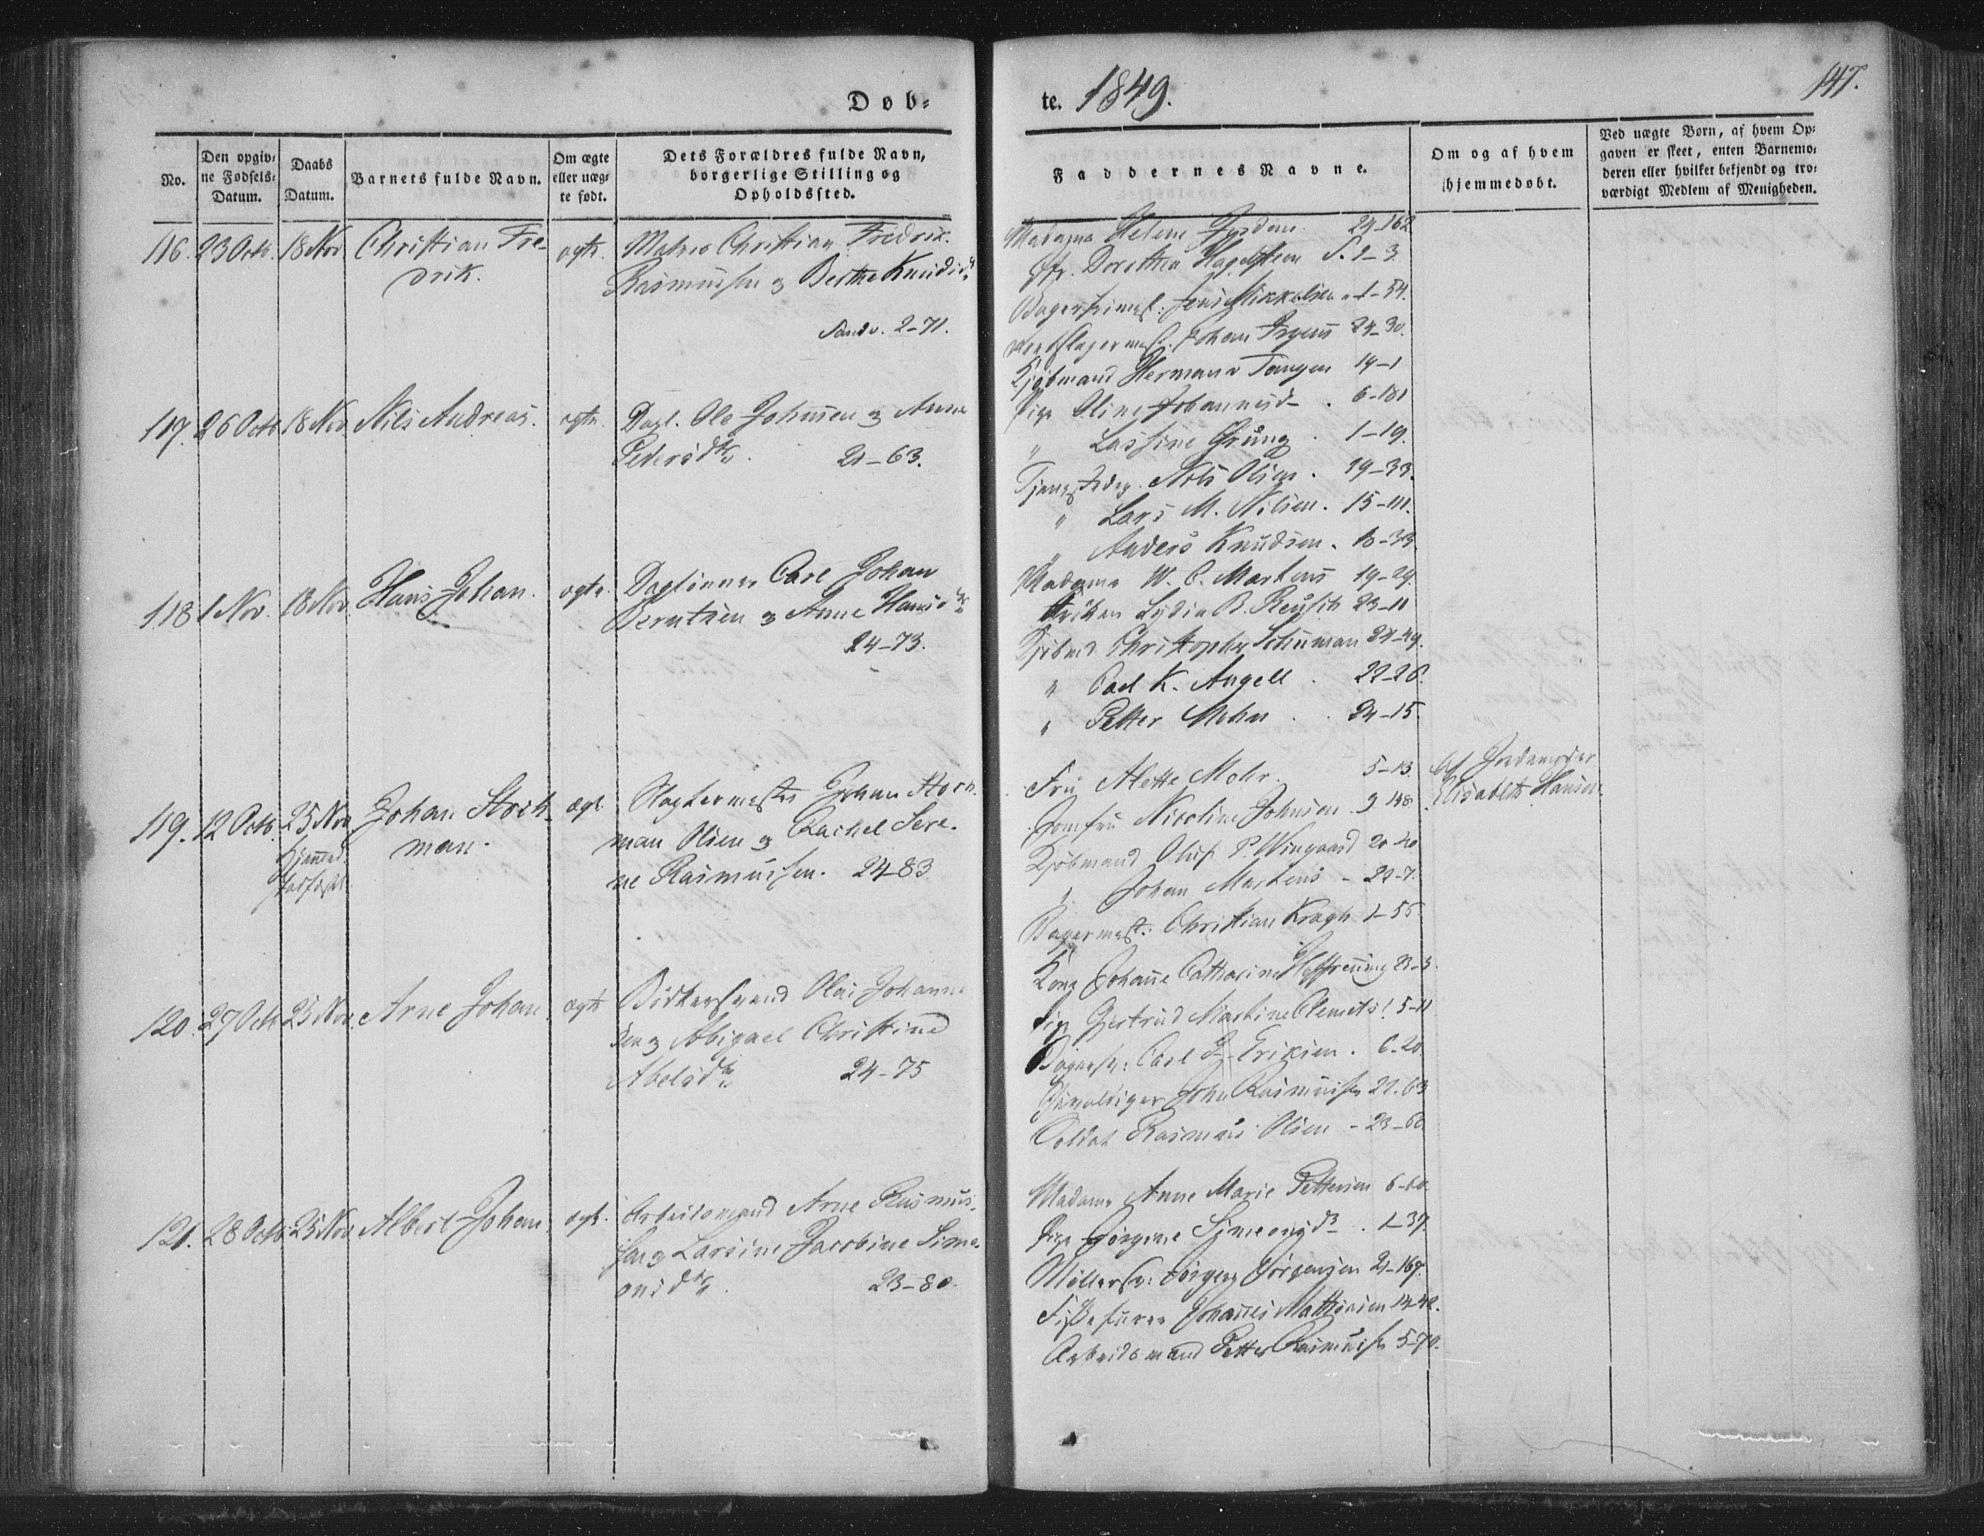 Døb-
te. 1849.
147.
No.
Den opgiv-
ne Fødsels-
Datum.
Daabs
Datum.
Barnets fulde Navn.
Om ægte
eller uæg-
te født.
Dets Forældres fulde Navn,
borgerlige Stilling og
Opholdssted.
Faddernes Navne.
Om og af hvem
hjemmedøbt.
Ved uægte Børn, af hvem Op-
gaven er skeet, enten Barnemo-
deren eller hvilket bekjendt og tro-
værdigt Medlem af Menigheden.
116. 23 Octb. 18 Nov Christian Fre-
drik.
ægte. Matros Christian Fredrik
Rasmussen og Berthe Knudsdr
Sandv. 2-71.
Madame Helene 24-162
Jfr. Dorothea Hagelsteen S. 2-3
Jens Mikkelsen 1-54.
Johan 24-30.
Kjøbmand Herman Tangen 14-1
117. 26 Octb 18 Nov Nils Andreas.
ægte. Dagl. Ole Johnsen og Anne
Pedersdtr. 21-63.
Pige Oline Johannesd. 6-181
" Lassine Grung . 1-19.
Tjenestedrg. Nils Olsen . 19-33.
" Lars M. Nilsen. 15-111.
" Anders Knudsen. 13-33
118. 1 Nov. 18 Nov Hans Johan.
ægte. Carl Johan
Berntsen og Anne Hansdtr
24-73.
Madame W. C. Martens 19-29.
Frøken Lydia B. Reusch 23-11
Kjøbmd Christopher Schuman 24-49.
" Carl K. Angell . 22-26.
" Petter Mohn . . 24-15.
119. 12 Octb. 25 Nov
Johan Stork-
man.
ægte. Slagtermester Johan Stork-
man Olsen og Rachel Sere-
ne Rasmussen. 24-83
Fru Alette Mohr. 5-13.
Jomfru Nicoline Johnsen 9-148.
Kjøbmand Oluf P. Wingaard 20-40
" Johan Martens - 22-7.
Bagermest: Christian Kragh 1-55.
af Jordemoder
Elisabeth Hansen
120. 27 Octb 25 Nov. Arne Johan
ægte Bødkersvend Olai Johanne-
sen og Abigael Christine
Abelsdtr 24-75
Kone Johanne Catharine 23-5.
Pige Gertrud Martine Clemets: 5-11
Bagersv: Carl J. Eriksen. 6-20
John Rasmussen 22-63
Soldat Rasmus Olsen - 23-60
121. 28 Octb 25 Nov Albert Johan
ægte. Arbeidsmand Arne Rasmus-
sen og Larsine Jacobine Sime-
onsdtr. 23-80.
Madame Anne Marie Pettersen 6-60
Pige Jørgene Simeonsdr . 1-37.
Møllersv: Jørgen Jørgensen 21-167.
Johannes Mathisen 14-48.
Arbeidsmand Petter Rasmussen 5-70.